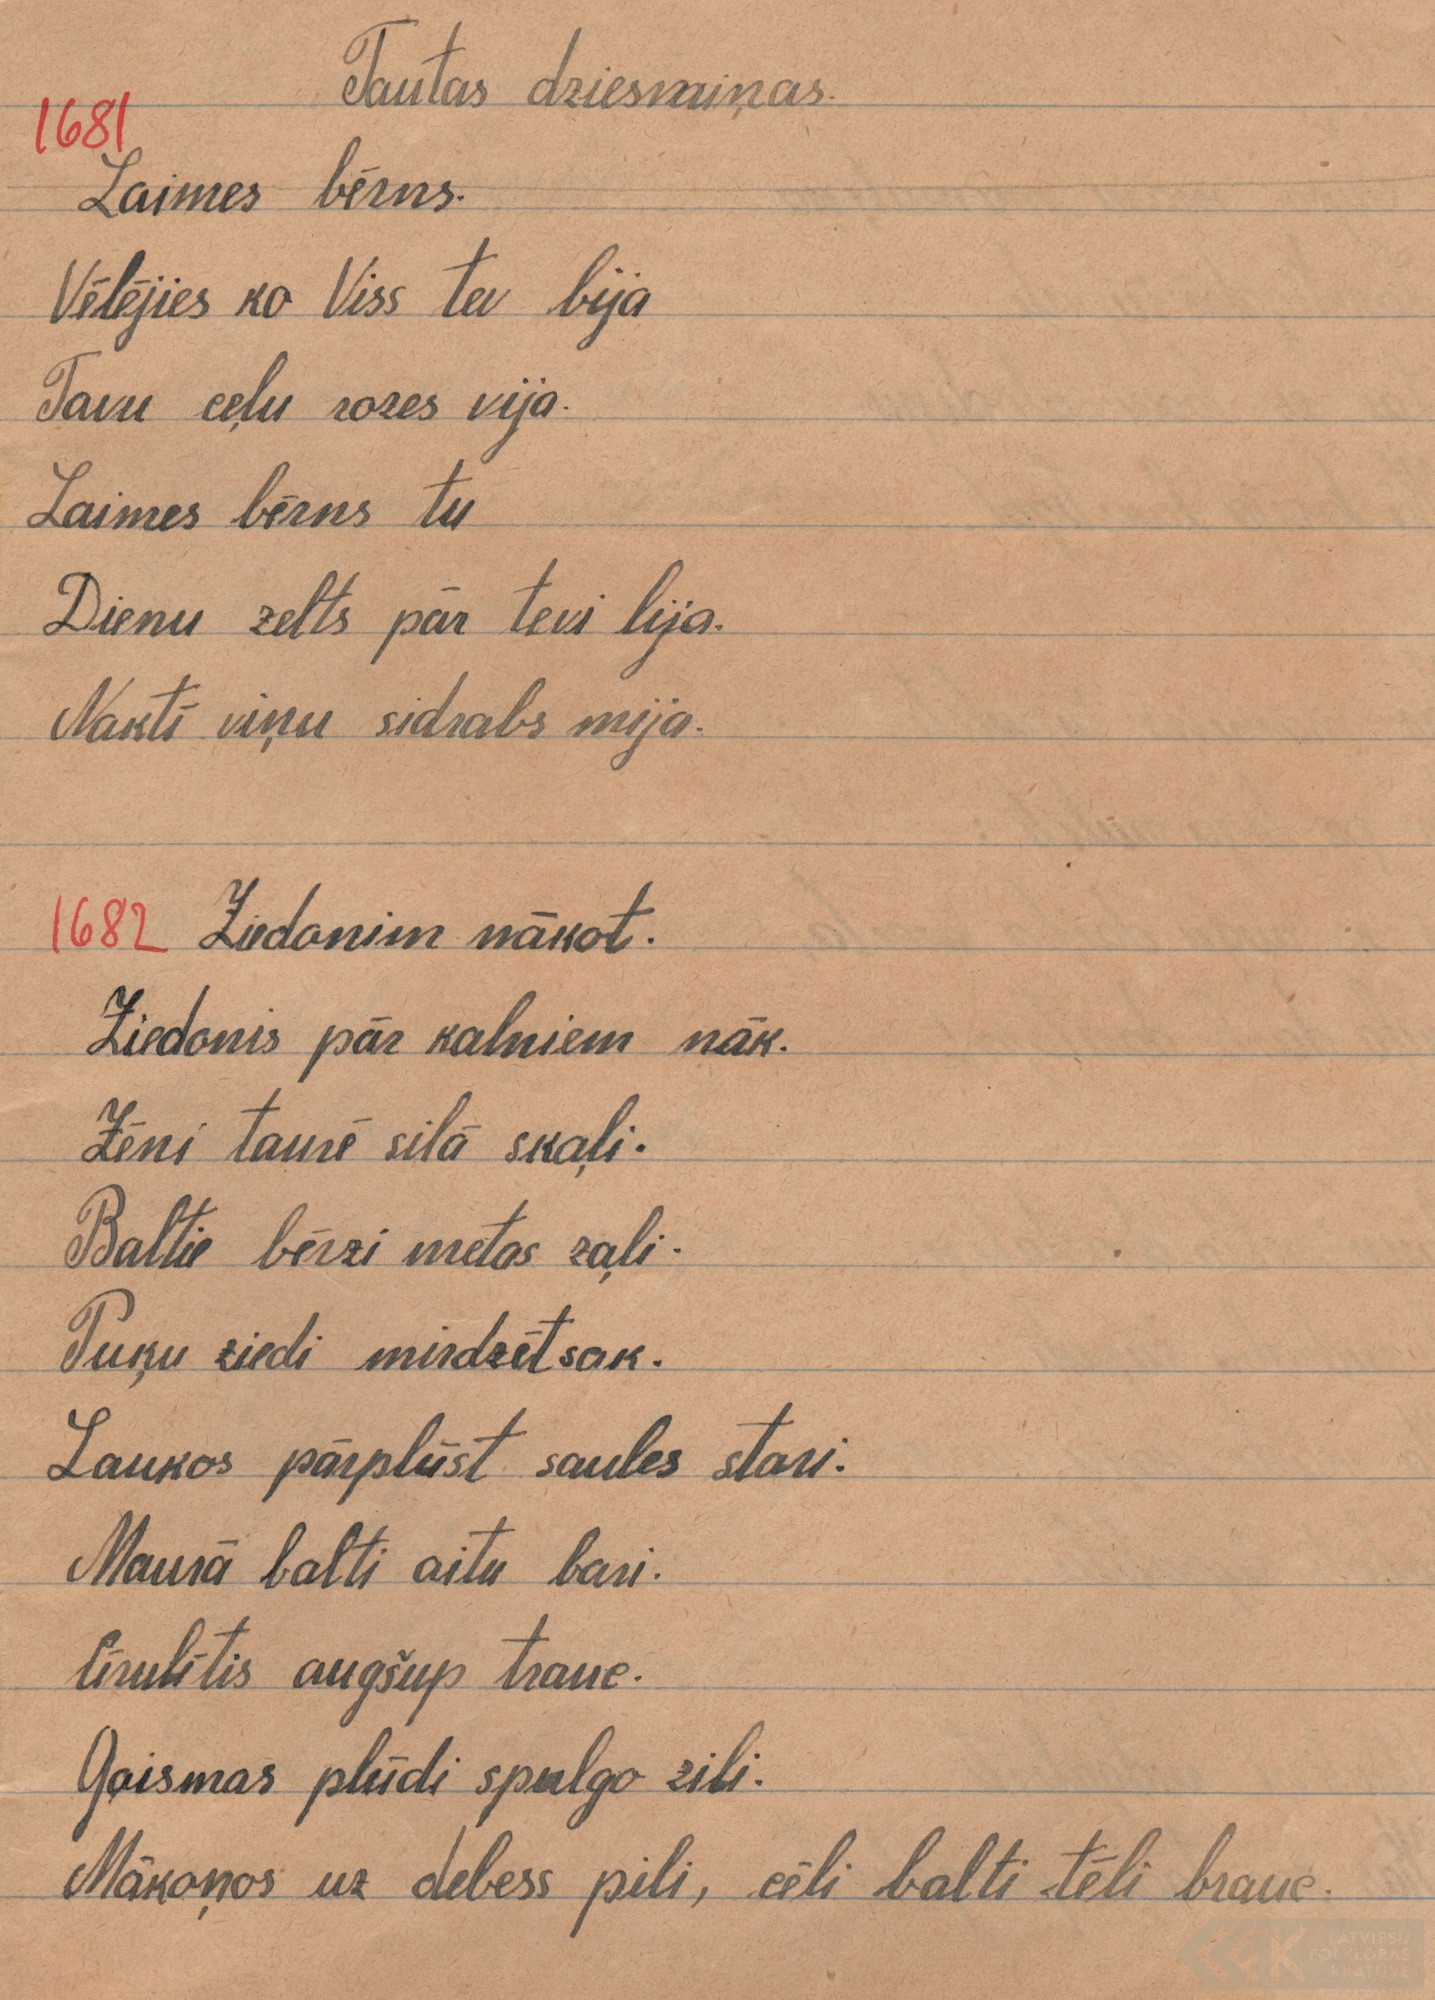 Tautas dziesmiņas.
1681
Laimes bērns.
Vēlējies ko Viss tev bija
Tavu ceļu rozes vija.
Laimes bērns tu
Dienu zelts pār tevi lija.
Naktī viņu sidrabs mija.
1682 Ziedonim nākot.
Ziedonis pār kalniem nāk.
Zēni taurē silā skaļi.
Baltie bērzi metas zaļi.
Puķu ziedi mirdzēt sak.
Laukos pārplūst saules stari.
Maurā balti aitu bari.
Cīrulītis augšup trauc.
Gaismas plūdi spulgo zili.
Mākoņos uz debess pili, cēli balti tēli brauc.
LATVIEŠU
FOLKLORAS
KRĀTUVE